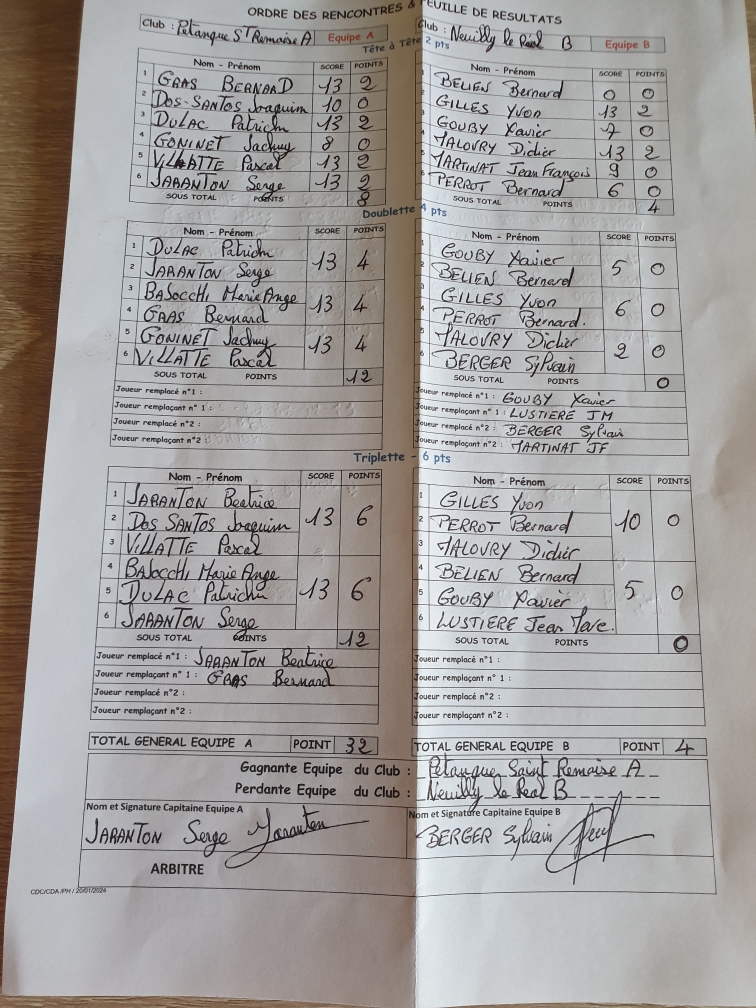 ORDRE DES RENCONTRES & FEUILLE DE RESULTATS
Club : Petanque St Remaise A Equipe A
Club : Neuilly le Réal B Equipe B
Tête à Tête 2 pts
Nom - Prénom SCORE POINTS
1 GRAS BERNARD 13 2
2 Dos-SANTOS Joaquim 10 0
3 DULAC Patrick 13 2
4 GONINET Jacky 8 0
5 VILLATTE Pascal 13 2
6 JARANTON Serge 13 2
SOUS TOTAL POINTS 8
Nom - Prénom SCORE POINTS
BELIEN Bernard 0 0
GILLES Yvon 13 2
GOUBY Xavier 7 0
MALOVRY Didier 13 2
MARTINAT Jean François 9 0
6 PERROT Bernard 6 0
SOUS TOTAL POINTS 4
Doublette 4 pts
Nom - Prénom SCORE POINTS
1 DULAC Patrick
2 JARANTON Serge 13 4
3 BASOCCHI Marie Ange
4 GRAS Bernard 13 4
5 GONINET Jacky
6 VILLATTE Pascal 13 4
SOUS TOTAL POINTS 12
Joueur remplacé n°1 :
Joueur remplaçant n° 1 :
Joueur remplacé n°2 :
Joueur remplaçant n°2 :
Nom - Prénom SCORE POINTS
GOUBY Xavier
BELIEN Bernard 5 0
GILLES Yvon
PERROT Bernard. 6 0
MALOVRY Didier
BERGER Sylvain 2 0
SOUS TOTAL POINTS 0
Joueur remplacé n°1 : GOUBY Xavier
Joueur remplaçant n° 1 : LUSTIERE JM
Joueur remplacé n°2 : BERGER Sylvain
Joueur remplaçant n°2 : MARTINAT JF
Triplette - 6 pts
Nom - Prénom SCORE POINTS
1 JARANTON Beatrice
2 Dos SANTOS Joaquim 13 6
3 VILLATTE Pascal
4 BASOCCHI Marie Ange
5 DULAC Patrick 13 6
6 JARANTON Serge
SOUS TOTAL POINTS 12
Joueur remplacé n°1 : JARANTON Beatrice
Joueur remplaçant n° 1 : GRAS Bernard
Joueur remplacé n°2 :
Joueur remplaçant n°2 :
Nom - Prénom SCORE POINTS
1 GILLES Yvon
2 PERROT Bernard 10 0
3 MALOVRY Didier
4 BELIEN Bernard
5 GOUBY Xavier 5 0
6 LUSTIERE Jean Marc.
SOUS TOTAL POINTS 0
Joueur remplacé n°1 :
Joueur remplaçant n° 1 :
Joueur remplacé n°2 :
Joueur remplaçant n°2 :
TOTAL GENERAL EQUIPE A POINT 32
TOTAL GENERAL EQUIPE B POINT 4
Gagnante Equipe du Club : Pétanque Saint Remaise A
Perdante Equipe du Club : Neuilly le Réal B
Nom et Signature Capitaine Equipe A
JARANTON Serge Jaranton
Nom et Signature Capitaine Equipe B
BERGER Sylvain
ARBITRE
CDC/CDA /PH / 20/01/2024